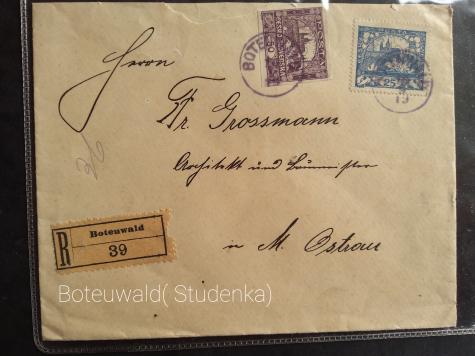 BOTE
50
25
19
Herrn
Fr. Grossmann
Architekt und Baumeister
in M. Ostrau
26
R
Boteuwald
39
Boteuwald( Studenka)